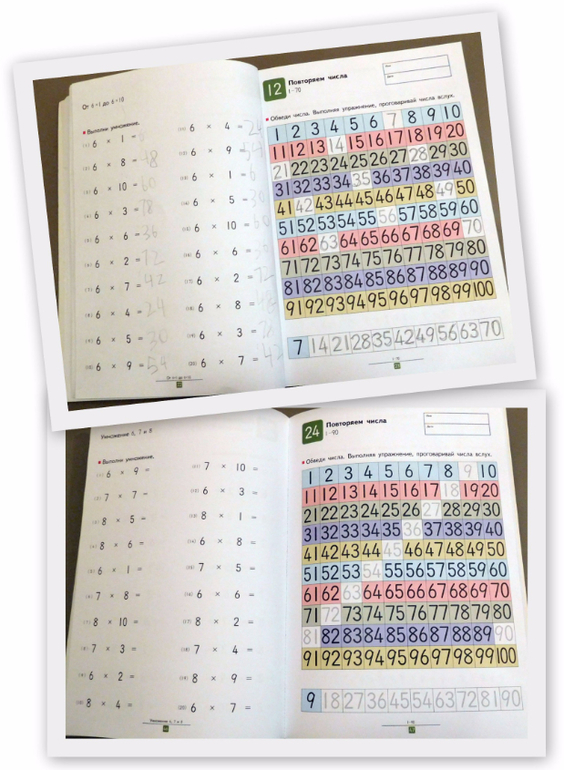 От 6×1 до 6×10
Выполни умножение.
(1) 6 × 1 =
(2) 6 × 8 = 48
(3) 6 × 10 = 60
(4) 6 × 3 = 18
(5) 6 × 6 = 36
(6) 6 × 2 = 12
(7) 6 × 7 = 42
(8) 6 × 4 = 24
(9) 6 × 5 = 30
(10) 6 × 9 = 54
(11) 6 × 4 = 24
(12) 6 × 9 = 54
(13) 6 × 1 = 6
(14) 6 × 5 = 30
(15) 6 × 10 = 60
(16) 6 × 6 =
(17) 6 × 2 = 12
(18) 6 × 8 =
(19) 6 × 3 =
(20) 6 × 7 = 42
12
Повторяем числа
1–70
Обведи числа. Выполняя упражнение, проговаривай числа вслух.
1 2 3 4 5 6 7 8 9 10
11 12 13 14 15 16 17 18 19 20
21 22 23 24 25 26 27 28 29 30
31 32 33 34 35 36 37 38 39 40
41 42 43 44 45 46 47 48 49 50
51 52 53 54 55 56 57 58 59 60
61 62 63 64 65 66 67 68 69 70
71 72 73 74 75 76 77 78 79 80
81 82 83 84 85 86 87 88 89 90
91 92 93 94 95 96 97 98 99 100
7 14 21 28 35 42 49 56 63 70
Умножение 6, 7 и 8
Выполни умножение.
(1) 6 × 9 =
(2) 7 × 7 =
(3) 8 × 5 =
(4) 8 × 6 =
(5) 6 × 1 =
(6) 7 × 8 =
(7) 8 × 10 =
(8) 7 × 3 =
(9) 6 × 2 =
(10) 8 × 4 =
(11) 7 × 10 =
(12) 6 × 3 =
(13) 8 × 1 =
(14) 6 × 8 =
(15) 7 × 5 =
(16) 6 × 6 =
(17) 8 × 2 =
(18) 7 × 4 =
(19) 8 × 9 =
(20) 6 × 7 =
Умножение 6, 7 и 8
24
Повторяем числа
1–90
Обведи числа. Выполняя упражнение, проговаривай числа вслух.
1 2 3 4 5 6 7 8 9 10
11 12 13 14 15 16 17 18 19 20
21 22 23 24 25 26 27 28 29 30
31 32 33 34 35 36 37 38 39 40
41 42 43 44 45 46 47 48 49 50
51 52 53 54 55 56 57 58 59 60
61 62 63 64 65 66 67 68 69 70
71 72 73 74 75 76 77 78 79 80
81 82 83 84 85 86 87 88 89 90
91 92 93 94 95 96 97 98 99 100
9 18 27 36 45 54 63 72 81 90